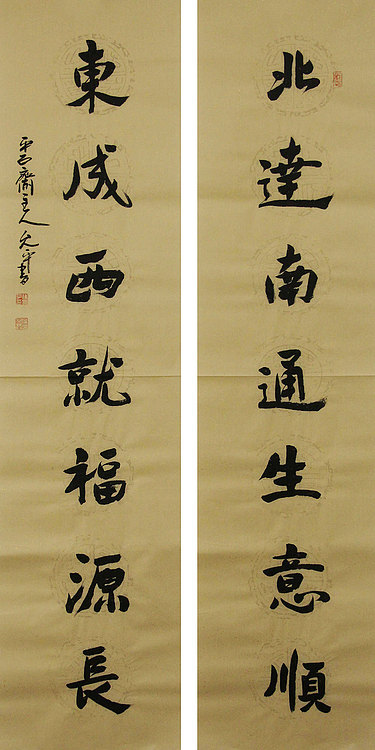 北達南通生意順
東成西就福源長
齋主人
書